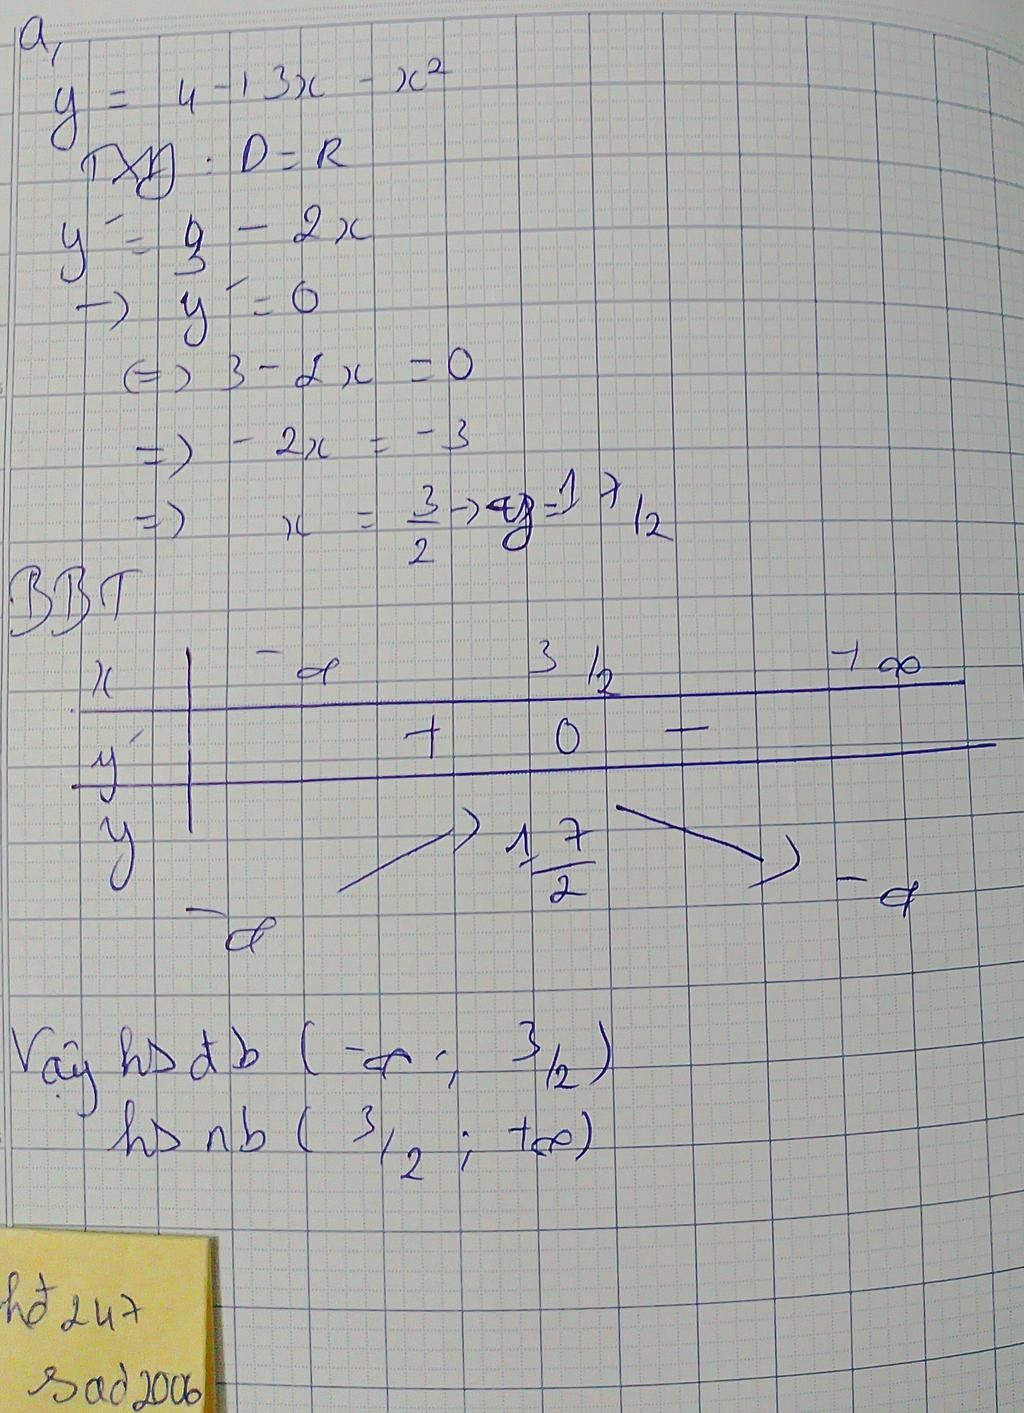 a,
y = 4 + 3x - x²
TXĐ : D = R
y' = 3 - 2x
→ y' = 0
<=> 3 - 2x = 0
=> - 2x = - 3
=> x = 3/2 → y = 17/2
BBT
x | -∞ 3/2 +∞
y' | + 0 -
y | -∞ 17/2 -∞
Vậy hs đb ( -∞ ; 3/2 )
hs nb ( 3/2 ; +∞)
hđ 247
sad2006